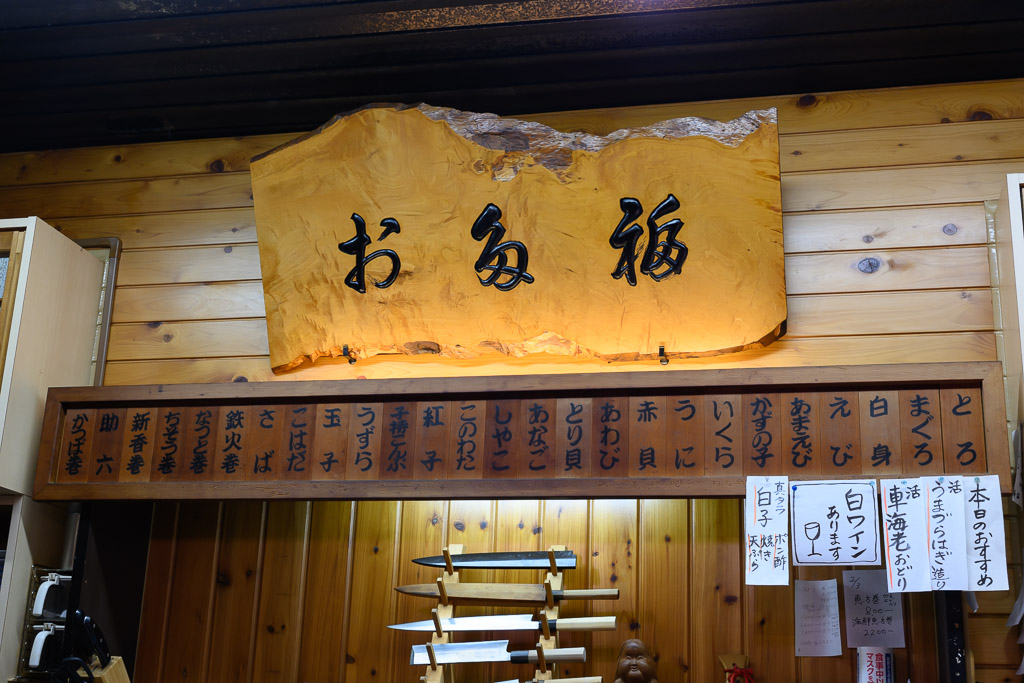 お多福
とろ
まぐろ
白身
えび
あまえび
かずの子
いくら
うに
赤貝
あわび
とり貝
あなご
しゃこ
このわた
紅子
子持こんぶ
うずら
玉子
こはだ
さば
鉄火巻
なっと巻
新香巻
助六
かっぱ巻
本日のおすすめ
活
うまづらはぎ造り
活
車海老おどり
白ワイン
あります
真タラ
白子
ポン酢
焼き
天ぷら
2/3
恵方巻
800-
海鮮恵方巻
2200-